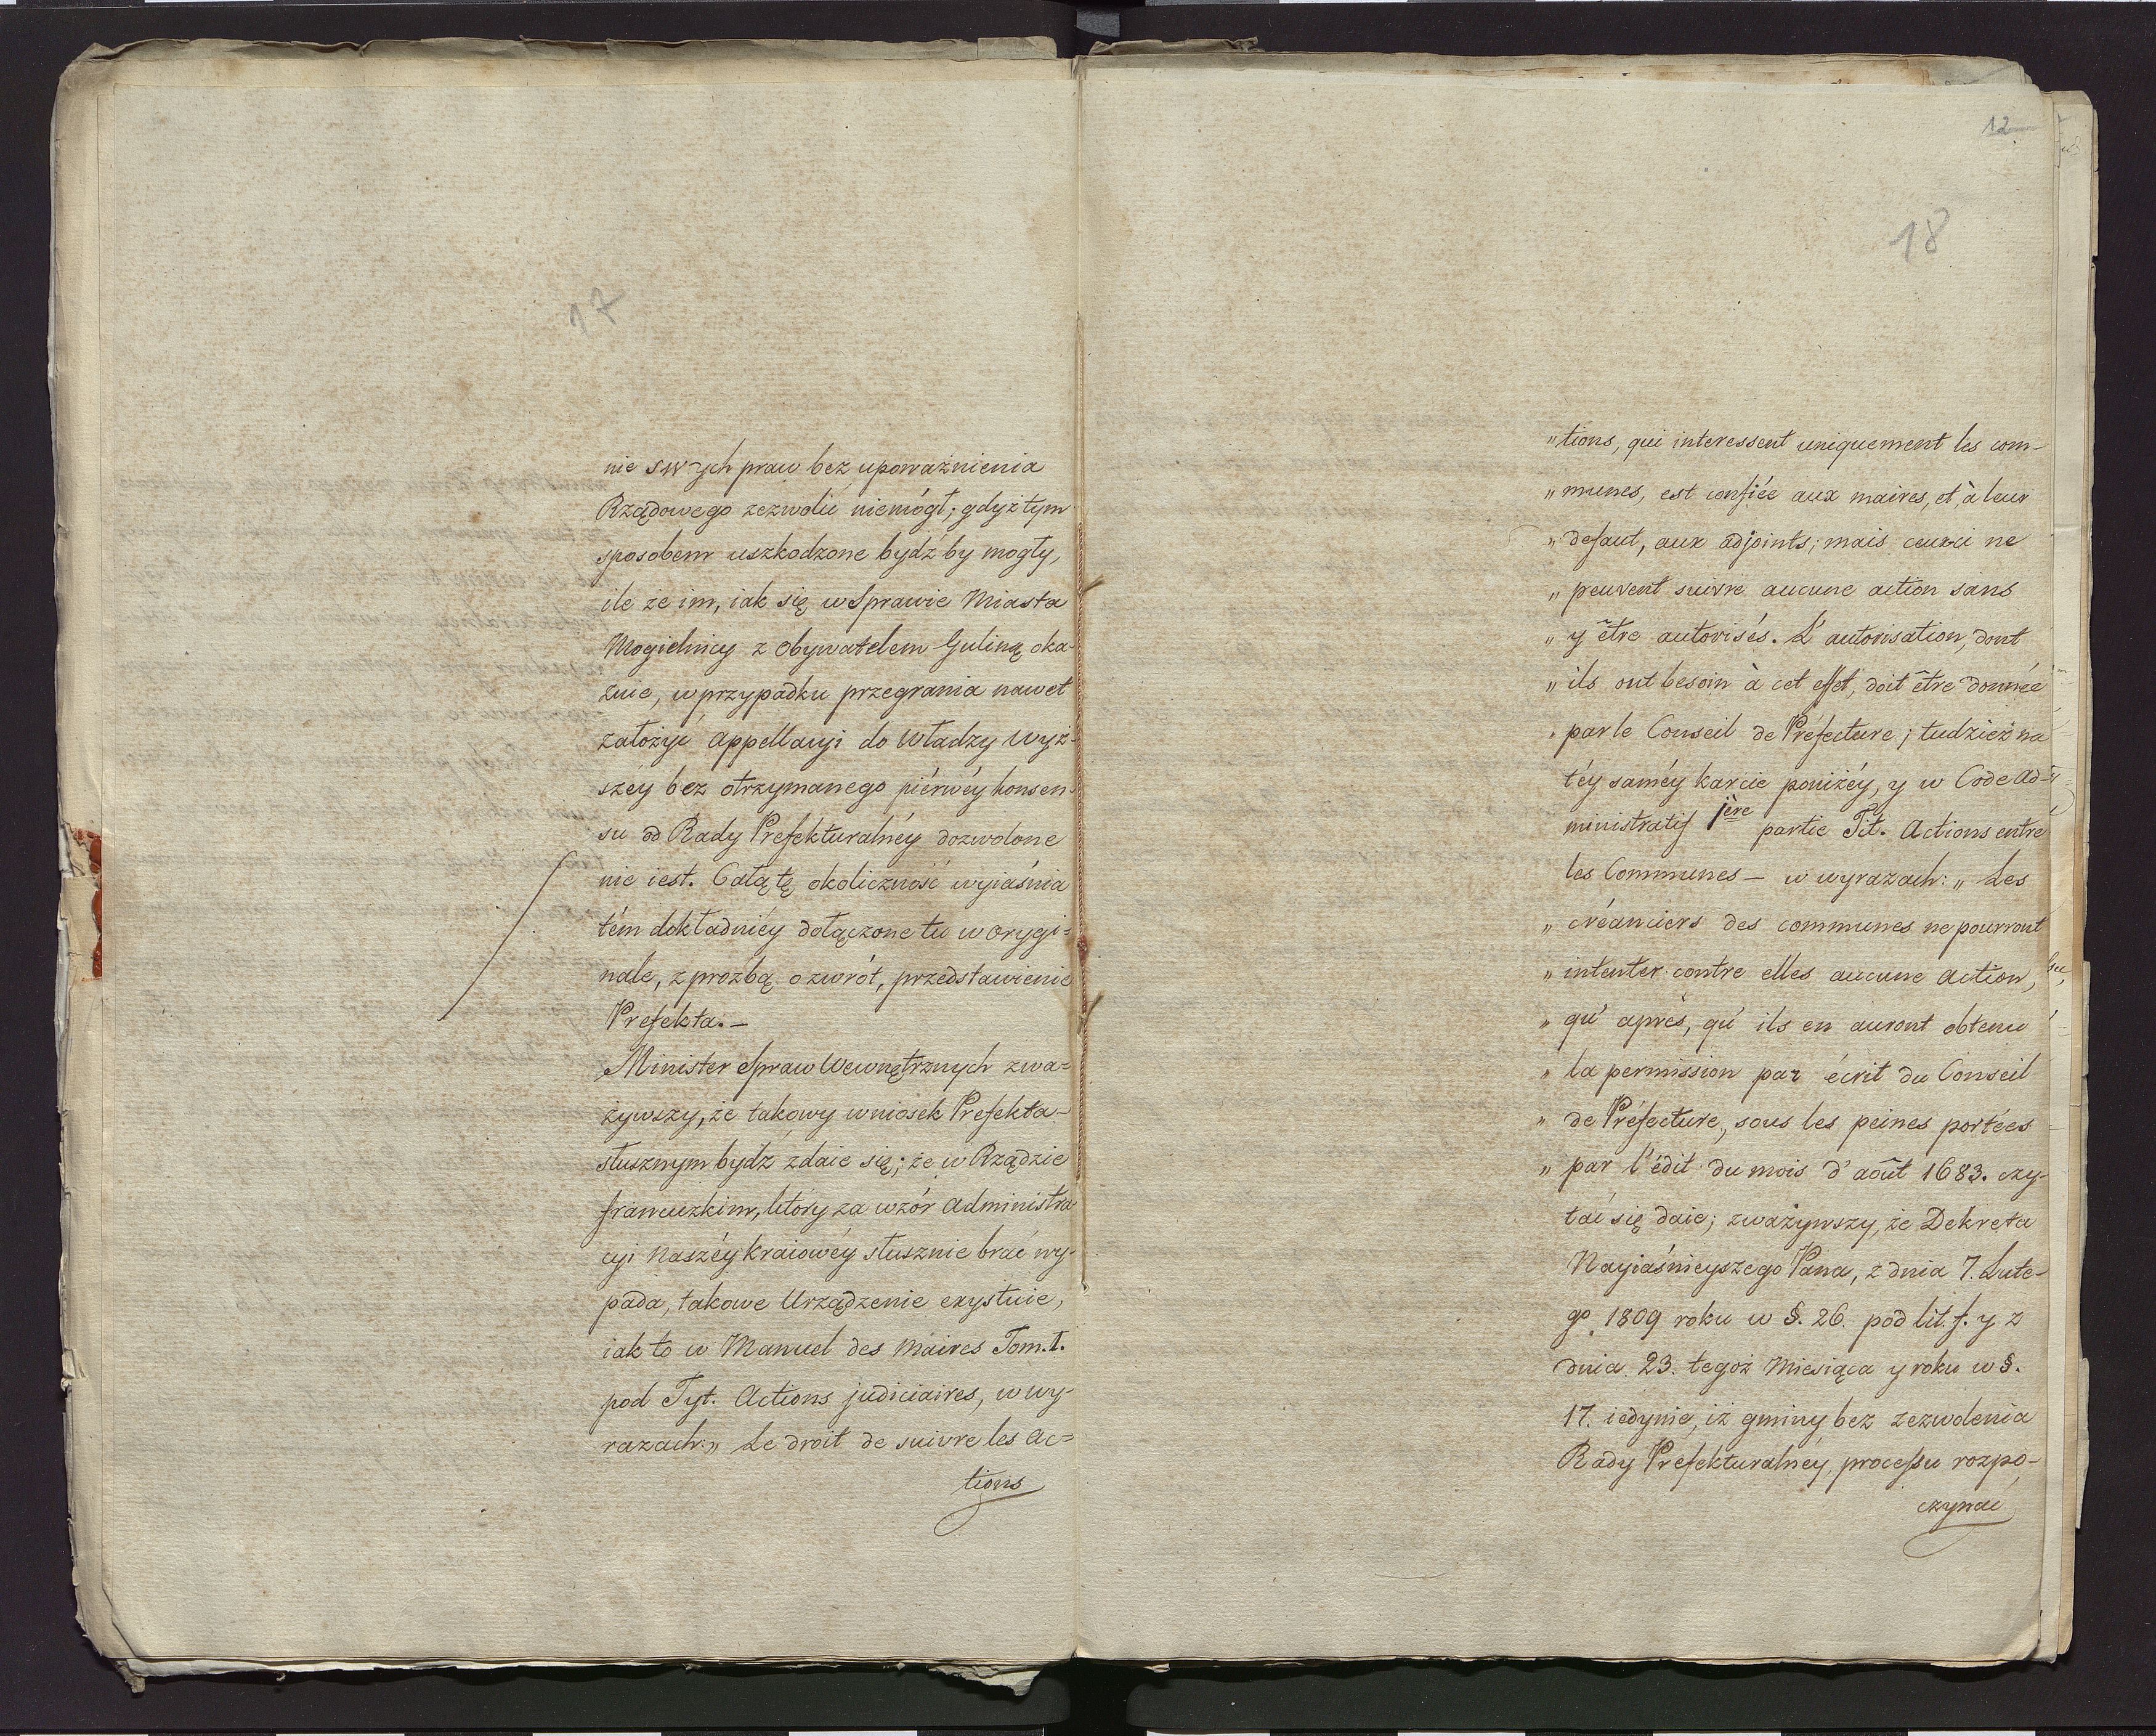 17
nie swych praw bez upoważnienia
Rządowego zezwolić niemógł; gdyż tym
sposobem uszkodzone bydź by mogły,
ile że im, iak się w Sprawie Miasta
Mogielnicy z Obywatelem Guliną oka-
zuie, w przypadku przegrania nawet
założyć Appellacyi do Władzy Wyż-
széy bez otrzymanego piérwéy konsen-
su od Rady Prefekturalnéy dozwolone
nie iest. Całą tę okoliczność wyiaśnia
tém dokładniéy dołączone tu w orygi=
nale, z prozbą o zwrót, przedstawienie
Prefekta.—
Minister Spraw Wewnętrznych zwa=
żywszy, że takowy wniosek Prefekta-
słusznym bydź zdaie się; że w Rządzie
francuzkim, który za wzór Administra-
cyi Naszéy kraiowéy słusznie brać wy-
pada, takowe Urządzenie exystuie,
iak to w Manuel des Maires Tom. 1.
pod Tyt. Actions judiciaires, w wy-
razach: „ Le droit de suivre les ac=
tions
12
18
„ tions, qui interessent uniquement les com-
„ munes, est confiée aux maires, et, à leur
„ defaut, aux adjoints; mais ceux-ci ne
„ peuvent suivre aucune action sans
„ y être autorisés. L'autorisation, dont
„ ils ont besoin à cet effet, doit être donnée
„ par le Conseil de Préfecture; tudzież na
téy saméy karcie poniżéy, y w Code Ad-
ministratif 1ère partie Tit. Actions entre
les Communes — w wyrazach: „ Les
„ créanciers des communes ne pourront
„ intenter contre elles aucune action,
„ qu'après, qu'ils en auront obtenu
„ la permission par écrit du Conseil
„ de Préfecture, sous les peines portées
„ par l'édit du mois d'août 1683. czy-
tać się daie; zważywszy, że Dekreta
Nayiaśnieyszego Pana, z dnia 7. Lute-
go 1809 roku w §. 26. pod lit. f. y z
dnia 23. tegoż Miesiąca y roku w §.
17. iedynie, iż gminy bez zezwolenia
Rady Prefekturalnéy, processu rozpo-
czynać